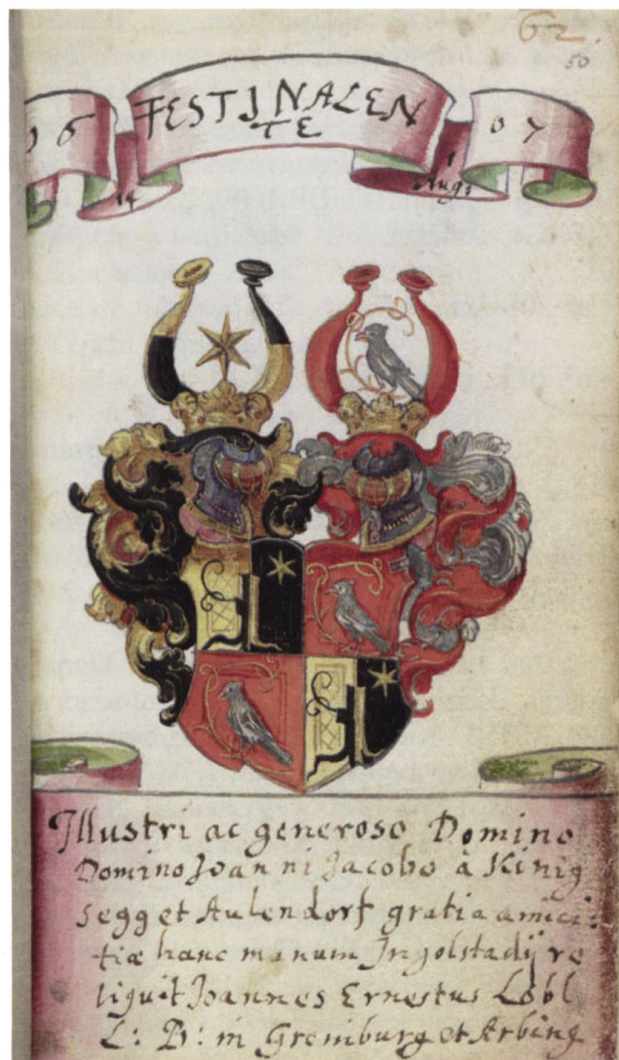 62.
50
16 FESTINALEN 07
TE
14 1
Aug:
Illustri ac generoso Domino
Domino Joanni Jacobo à Kinig
segg et Aulendorf gratia amici:
tiæ hanc manum Ingolstadij re
liquit Joannes Ernestus Löbl
L: B: in Greniburg et Arbing